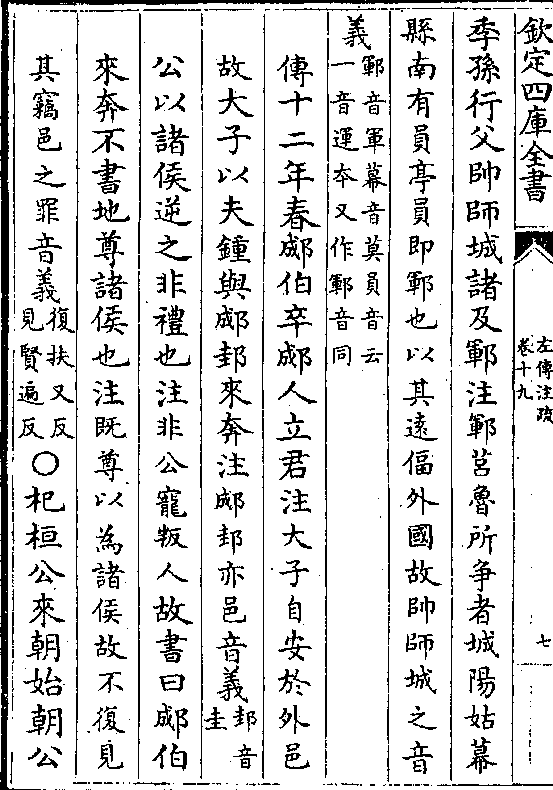 欽定四庫全書
左傳注疏
卷十九
七
季孫行父帥師城諸及鄆注鄆莒魯所爭者城陽姑幕
縣南有員亭員即鄆也以其遠偪外國故帥師城之音
義鄆音軍幕音莫員音云
一音運本又作鄆音同
傳十二年春郕伯卒郕人立君注大子自安於外邑
故大子以夫鍾與郕邽來奔注郕邽亦邑音義邽音
圭
公以諸侯逆之非禮也注非公寵叛人故書曰郕伯
來奔不書地尊諸侯也注既尊以為諸侯故不復見
其竊邑之罪音義復扶又反
見賢遍反〇杞桓公來朝始朝公